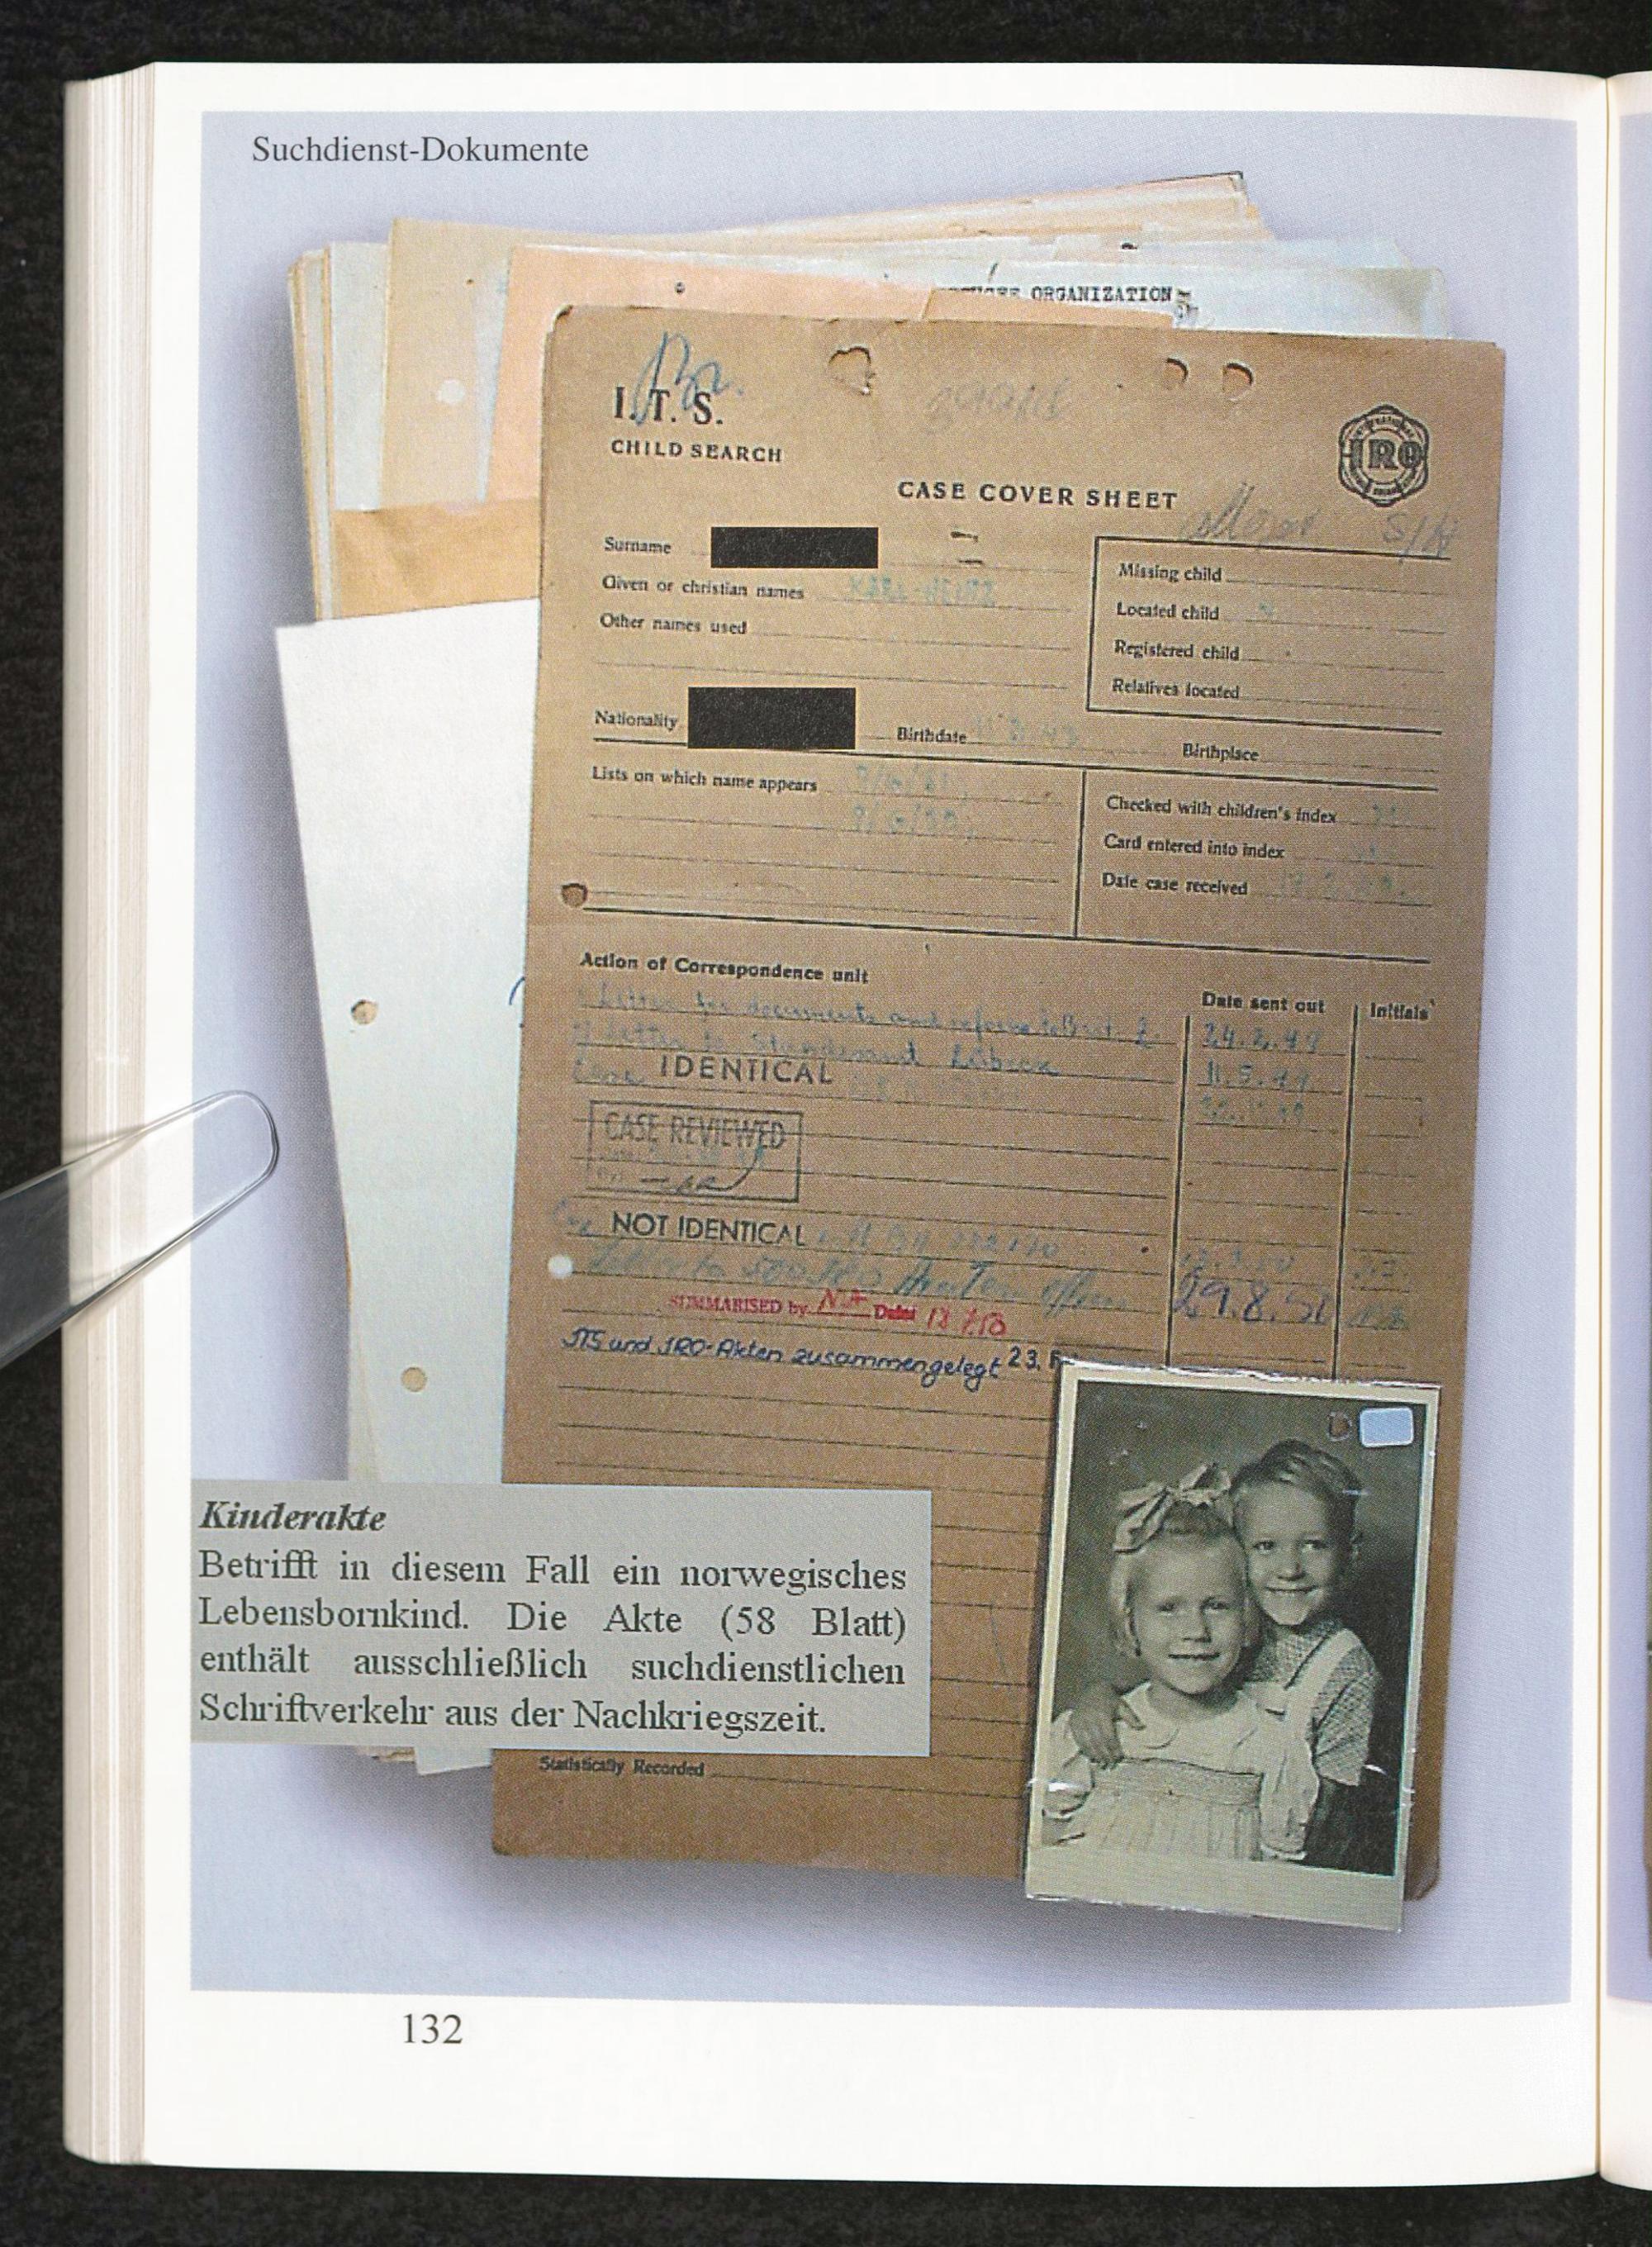 Suchdienst-Dokumente
ORGANIZATION
I.T.S.
CHILD SEARCH
IRO
CASE COVER SHEET
Surname
Given or christian names KARL-HEINZ
Other names used
Missing child
Located child
Registered child
Relatives located
Nationality
Birthdate
Birthplace
Lists on which name appears
Checked with children's index
Card entered into index
Date case received
Action of Correspondence unit
Date sent out
Initials
Letter for documents and
24.2.49
Letter to Standesamt Lübeck
11.5.49
Case IDENTICAL
CASE REVIEWED
NOT IDENTICAL
Letter to
29.8.51
SUMMARISED by Date
ITS und IRO-Akten zusammengelegt 23. F
Kinderakte
Betrifft in diesem Fall ein norwegisches
Lebensbornkind. Die Akte (58 Blatt)
enthält ausschließlich suchdienstlichen
Schriftverkehr aus der Nachkriegszeit.
Statistically Recorded
132